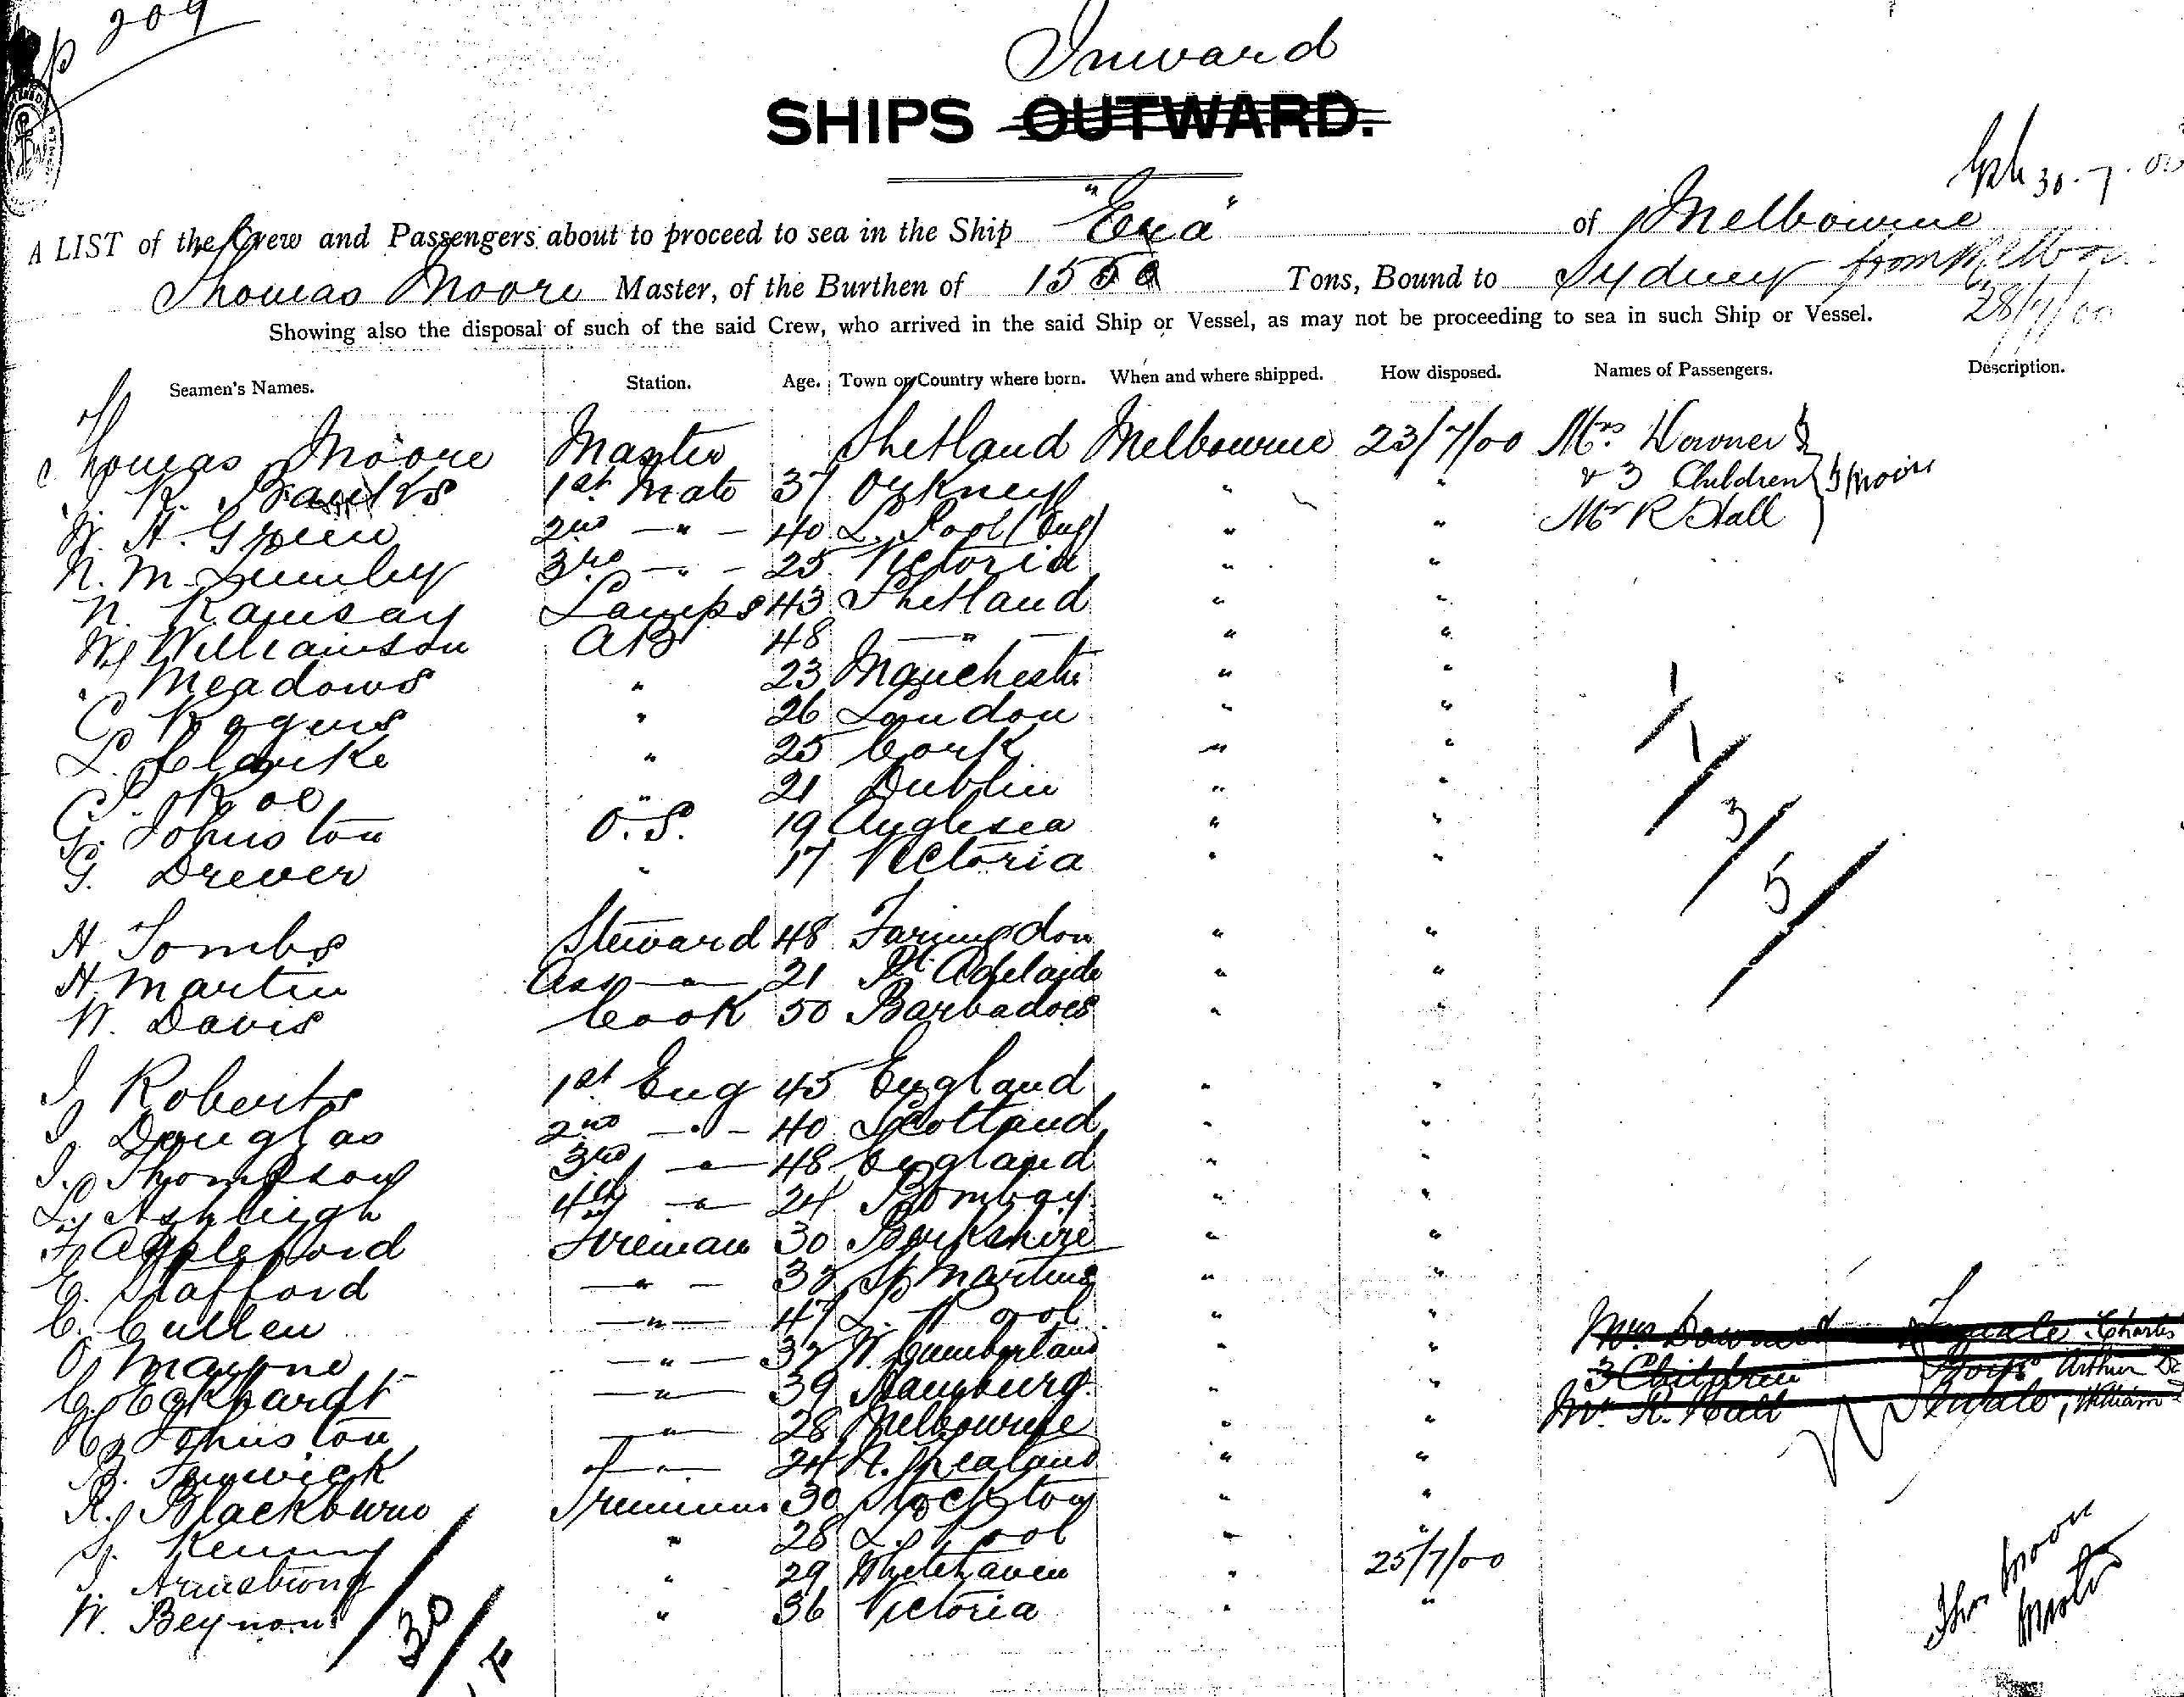 209
Inward
SHIPS OUTWARD.
30.7.00
A LIST of the Crew and Passengers about to proceed to sea in the Ship "Era" of Melbourne
Thomas Moore Master, of the Burthen of 1550 Tons, Bound to Sydney from Melbn
28/7/00
Showing also the disposal of such of the said Crew, who arrived in the said Ship or Vessel, as may not be proceeding to sea in such Ship or Vessel.
Seamen's Names. Station. Age. Town or Country where born. When and where shipped. How disposed. Names of Passengers. Description.
Thomas Moore Master Shetland Melbourne 23/7/00 Mrs Downer
J. R. Banks 1st Mate 37 Orkney " " & 3 Children
W. H. Green 2nd — " — 40 L. Pool (Eng) " " Mr R Hall
N. M. Lumley 3rd — " — 25 Victoria " "
N. Ramsay Lamps 43 Shetland " "
W. Williamson AB 48 — " — " "
Meadows " 23 Manchester " "
C Rogers " 26 London " "
L. Clarke " 25 Cork " "
P. Roe " 21 Dublin " "
G. Johnston O.S. 19 Anglesea " "
G. Drever " 17 Victoria " "
H. Tombs Steward 48 Faringdon " "
H. Martin Ass — " — 21 Pt. Adelaide " "
W. Davis Cook 50 Barbadoes " "
J. Roberts 1st Eng 45 England " "
J. Douglas 2nd — " — 40 Scotland " "
J. Thompson 3rd — " — 48 England " "
L. Ashleigh 4th — " — 24 Bombay " "
F. Appleford Fireman 30 Berkshire " "
E. Stafford — " — St Martins " "
C. Cullen — " — 47 L. Pool " "
O. Mayone — " — 37 N. Cumberland " "
C. Eckhardt — " — 39 Hamburg " "
H. Johnston — " — 28 Melbourne " "
B. Fenwick — " — 24 N. Zealand " "
R. Blackburn Trimmer 30 Stockton " "
S. Kenny " 28 L. Pool " "
J. Armstrong " 29 Whitehaven " 25/7/00
W. Beynon " 36 Victoria " "
1
1
3
5
Mrs Downer Female Charles
3 Children Boys Arthur
Mr R. Hall William
30
Thos Moore
Master